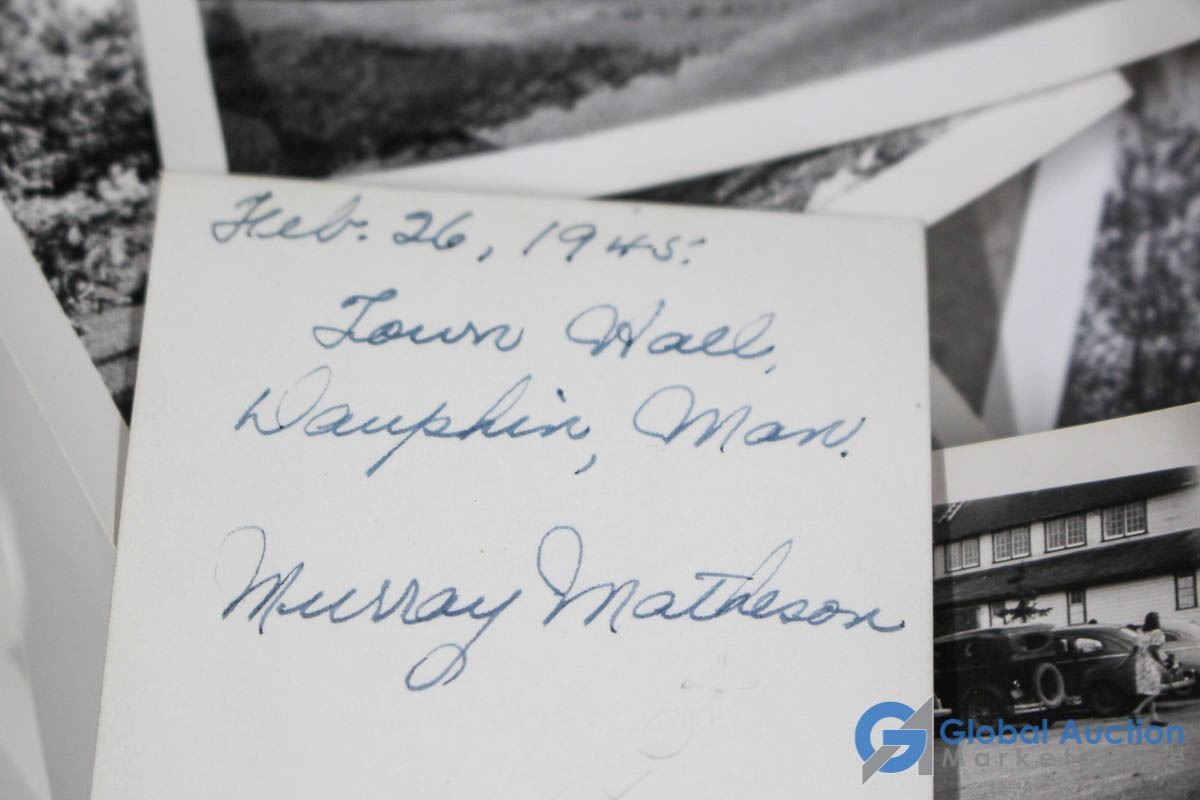 Feb. 26, 1945.
Town Hall,
Dauphin, Man.
Murray Matheson
Global Auction